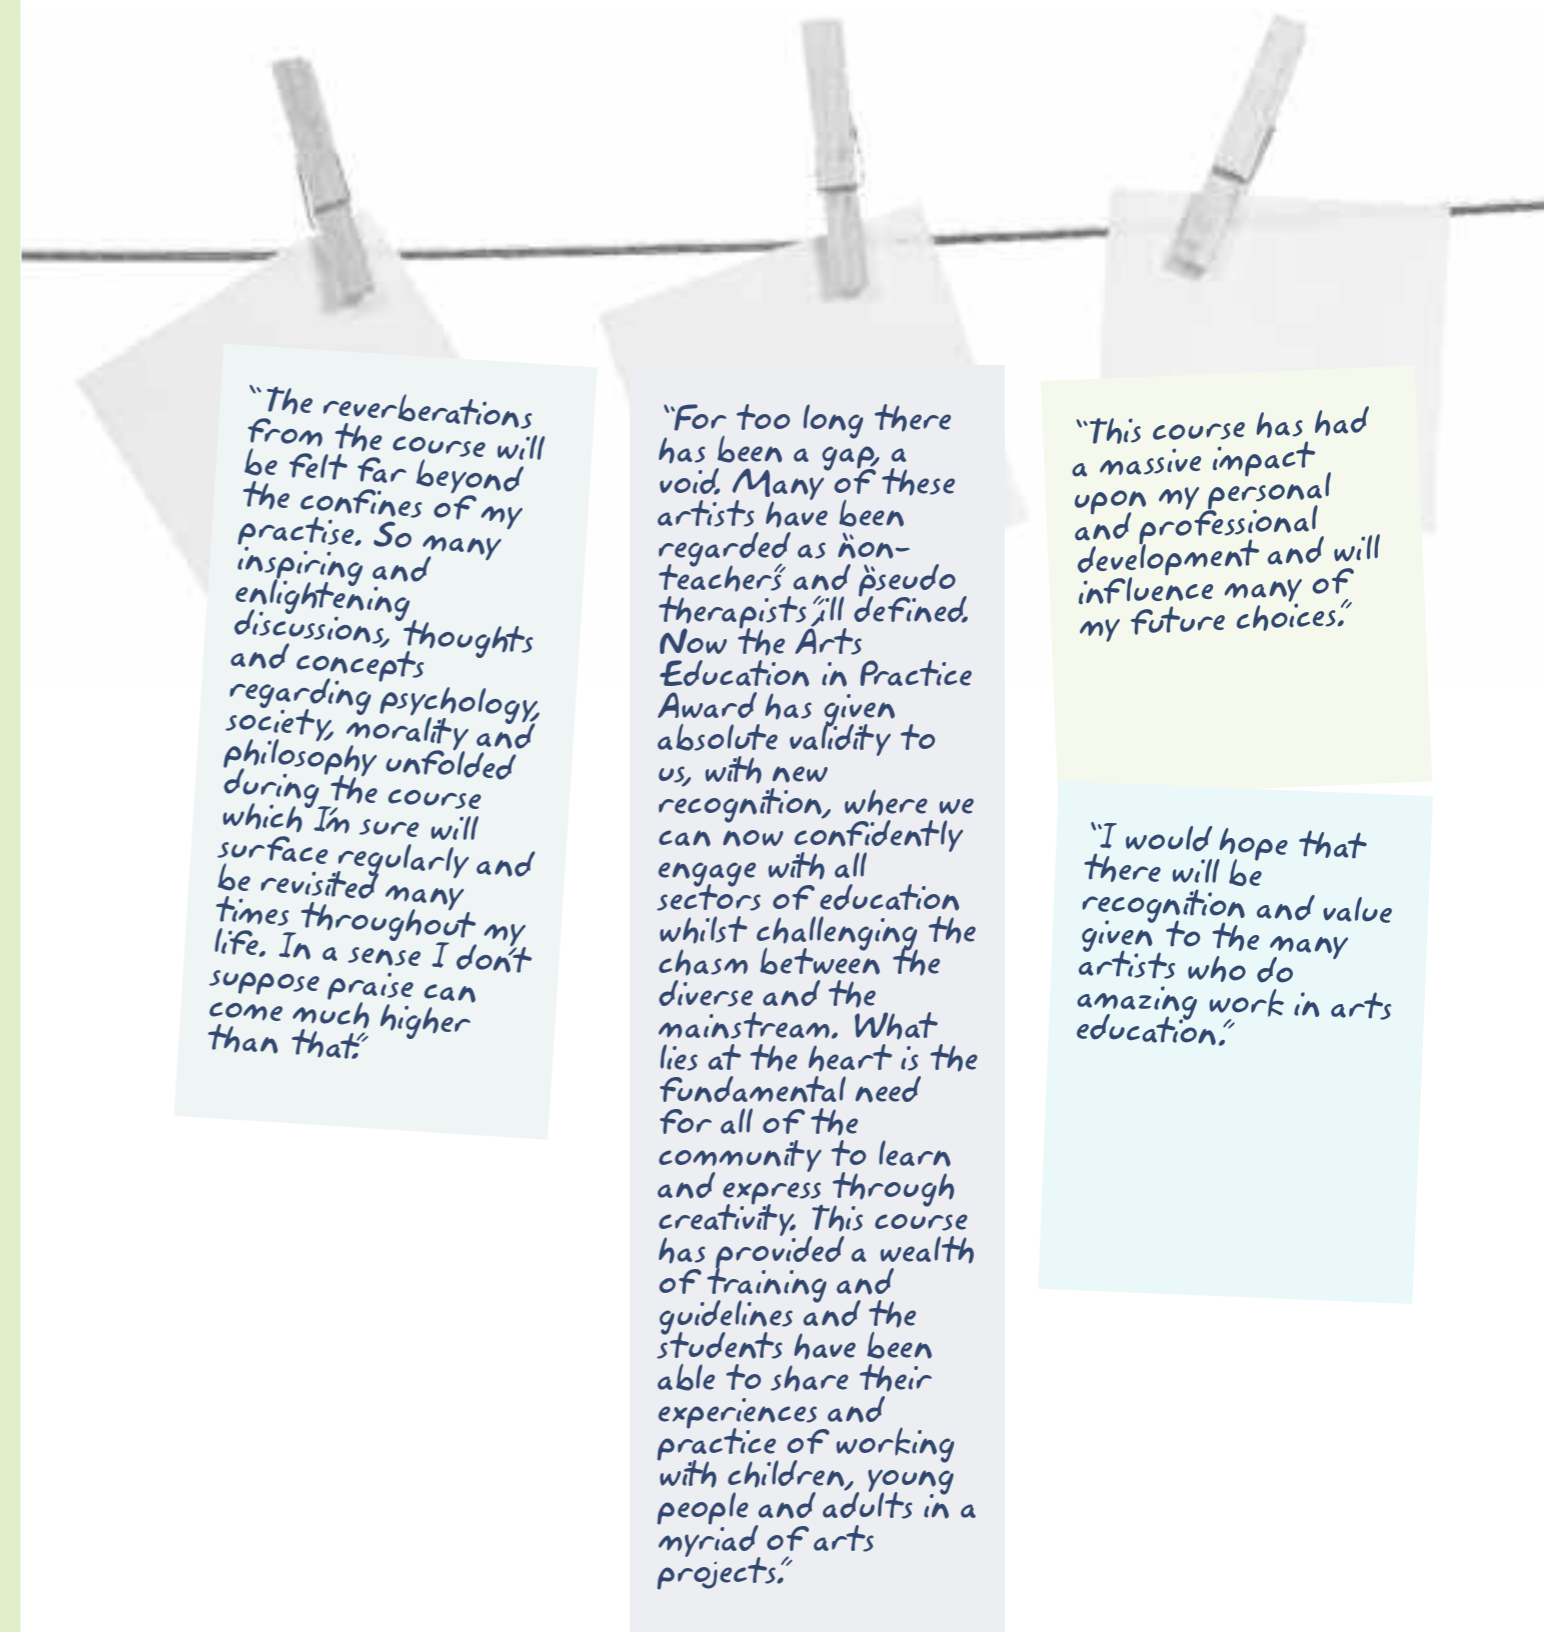 “The reverberations
from the course will
be felt far beyond
the confines of my
practise. So many
inspiring and
enlightening
discussions, thoughts
and concepts
regarding psychology,
society, morality and
philosophy unfolded
during the course
which I'm sure will
surface regularly and
be revisited many
times throughout my
life. In a sense I don't
suppose praise can
come much higher
than that.”
“For too long there
has been a gap, a
void. Many of these
artists have been
regarded as “non-
teachers” and “pseudo
therapists”, ill defined.
Now the Arts
Education in Practice
Award has given
absolute validity to
us, with new
recognition, where we
can now confidently
engage with all
sectors of education
whilst challenging the
chasm between the
diverse and the
mainstream. What
lies at the heart is the
fundamental need
for all of the
community to learn
and express through
creativity. This course
has provided a wealth
of training and
guidelines and the
students have been
able to share their
experiences and
practice of working
with children, young
people and adults in a
myriad of arts
projects.”
“This course has had
a massive impact
upon my personal
and professional
development and will
influence many of
my future choices.”
“I would hope that
there will be
recognition and value
given to the many
artists who do
amazing work in arts
education.”